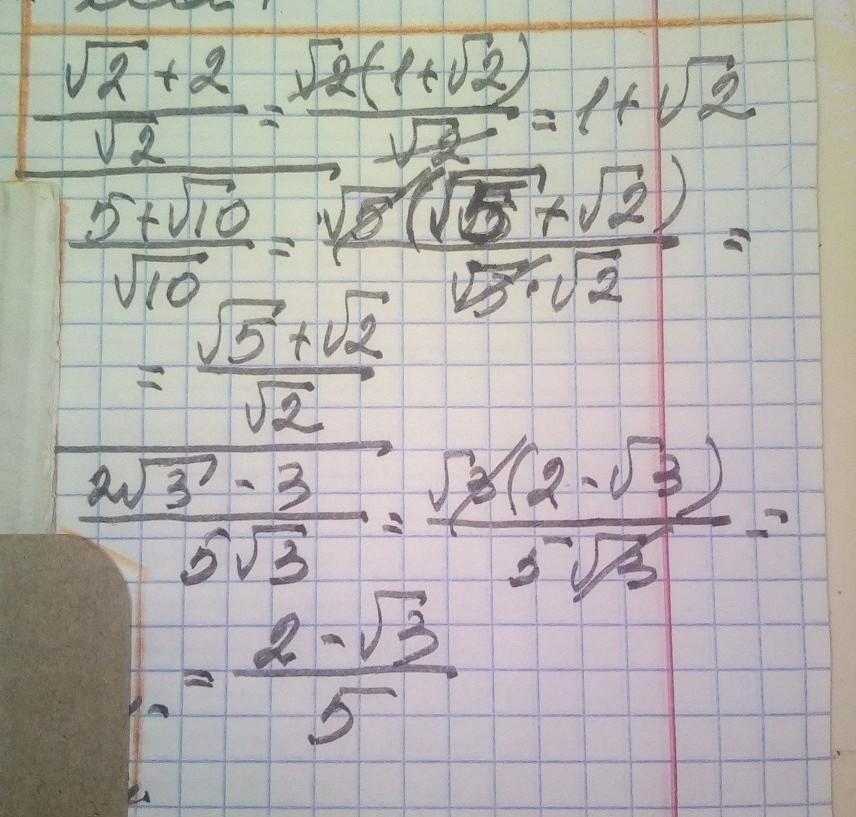 (√2 + 2)/√2 = √2(1+√2)/√2 = 1+√2
(5+√10)/√10 = √5(√5+√2)/(√5·√2) =
= (√5+√2)/√2
(2√3 - 3)/(5√3) = √3(2-√3)/(5√3) =
= (2-√3)/5